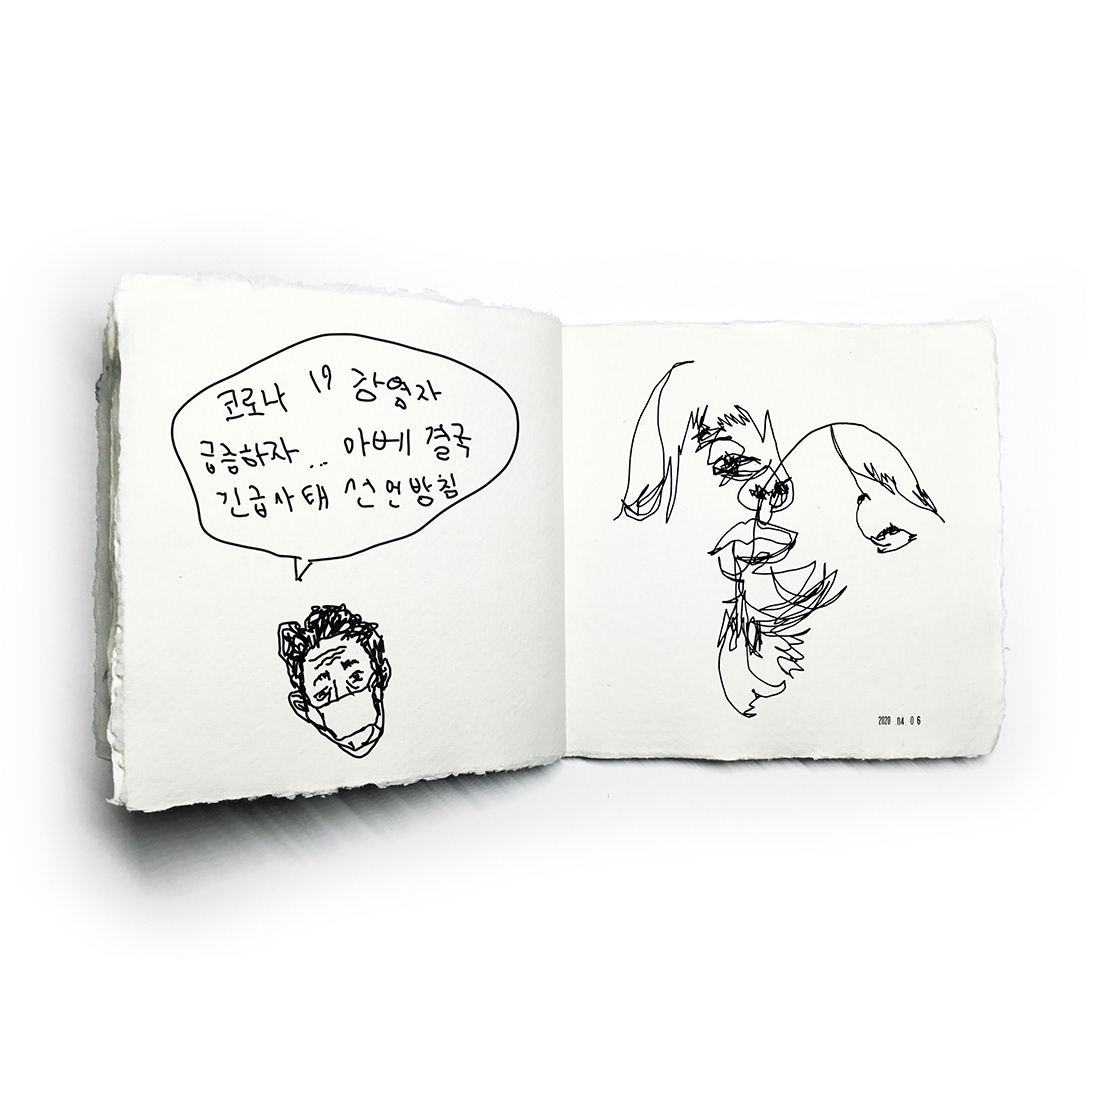 코로나 19 감염자
급증하자... 아베 결국
긴급사태 선언방침
2020 04 06